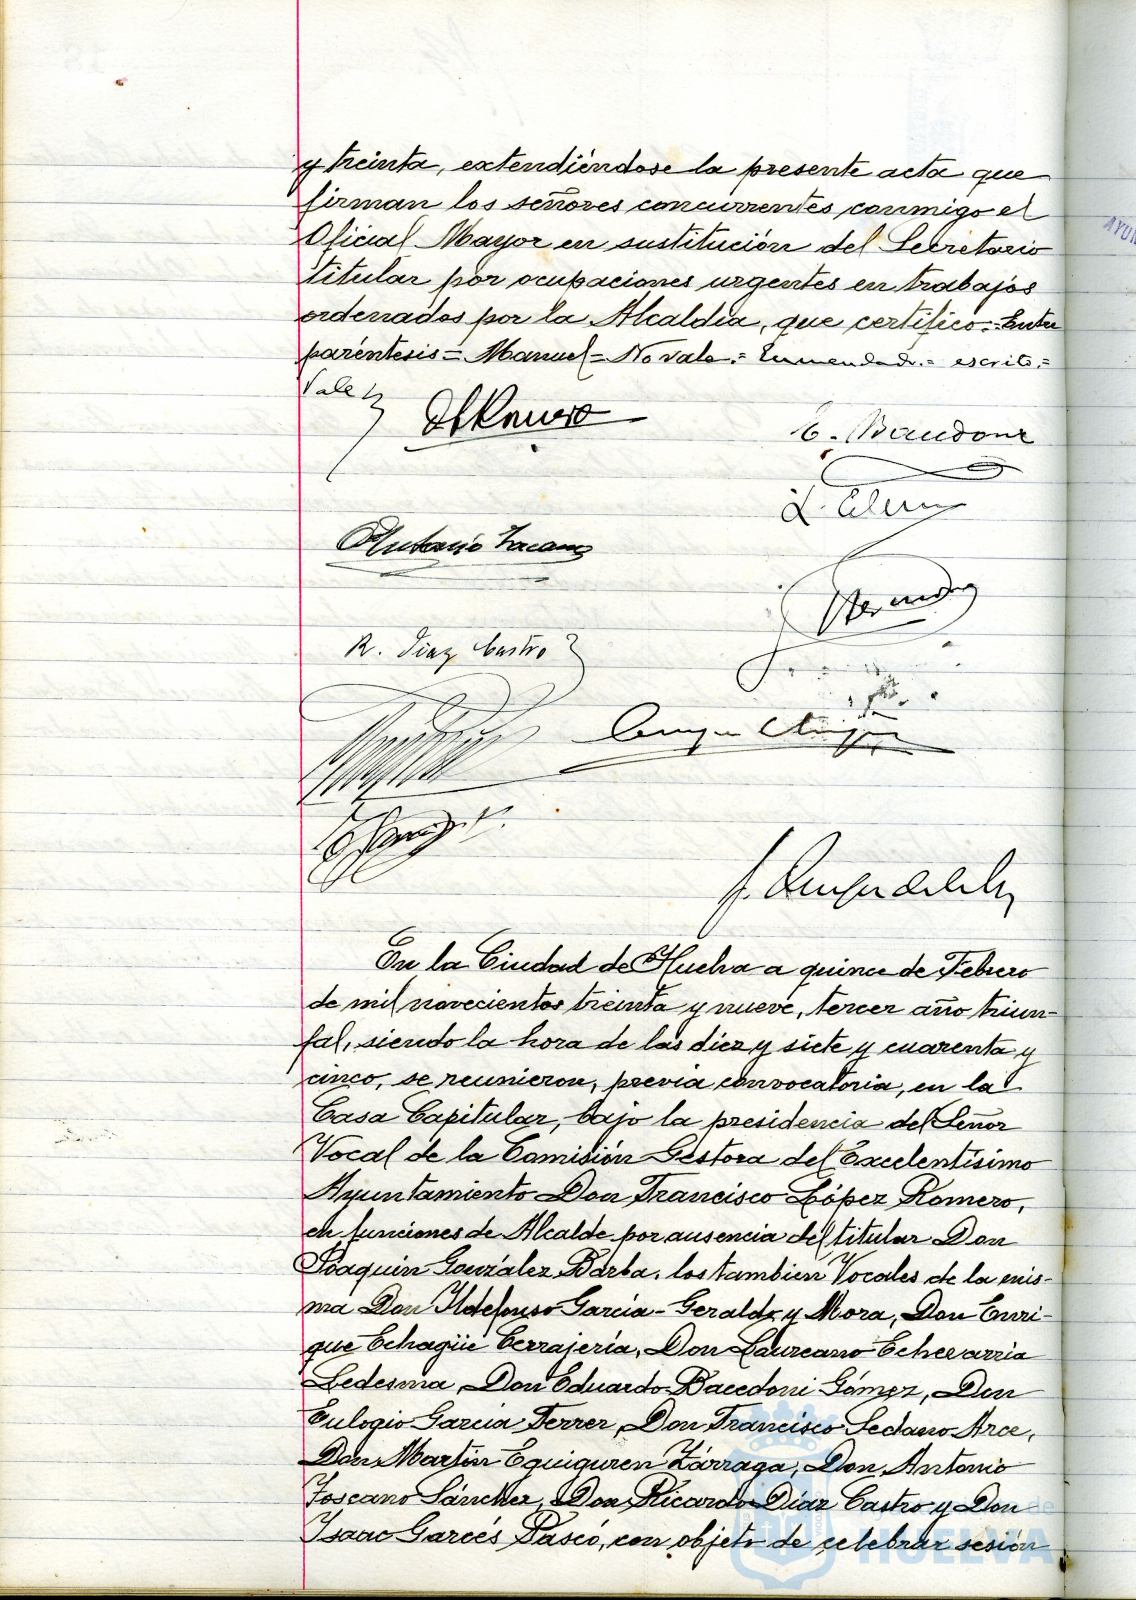 y treinta, extendiéndose la presente acta que
firman los señores concurrentes conmigo el
Oficial Mayor en sustitución del Secretario
titular por ocupaciones urgentes en trabajos
ordenados por la Alcaldía, que certifico.- Entre
paréntesis = Manuel = No vale.= Enmendado.= escrito.=
Vale
AYUN
Antonio Toscano
R. Diaz Castro
En la Ciudad de Huelva a quince de Febrero
de mil novecientos treinta y nueve, tercer año triun-
fal, siendo la hora de las diez y siete y cuarenta y
cinco, se reunieron, previa convocatoria, en la
Casa Capitular, bajo la presidencia del Señor
Vocal de la Comisión Gestora del Excelentísimo
Ayuntamiento Don Francisco López Romero,
en funciones de Alcalde por ausencia del titular Don
Joaquin González Barba, los tambien Vocales de la mis-
ma Don Ildefonso Garcia-Geraldo y Mora, Don Enri-
que Echagüe Cerrajería, Don Laureano Echevarria
Ledesma, Don Eduardo Bacedoni Gómez, Don
Eulogio Garcia Ferrer, Don Francisco Sedano Arce,
Don Martin Eguiguren Zárraga, Don Antonio
Toscano Sánchez, Don Ricardo Diaz Castro y Don
Isaac Garcés Pascó, con objeto de celebrar sesión
de
HUELVA